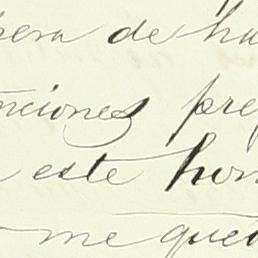 pera de ha
nciones pre
este hon
me qued